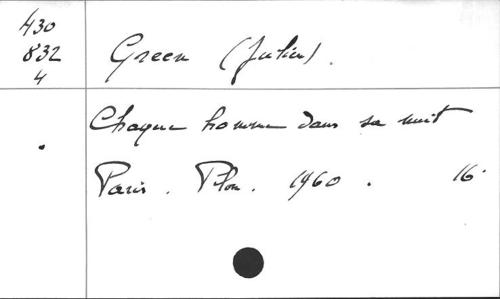 430
832
4
Green (Julien).
Chaque homme dans sa nuit
Paris. Plon. 1960. 16°